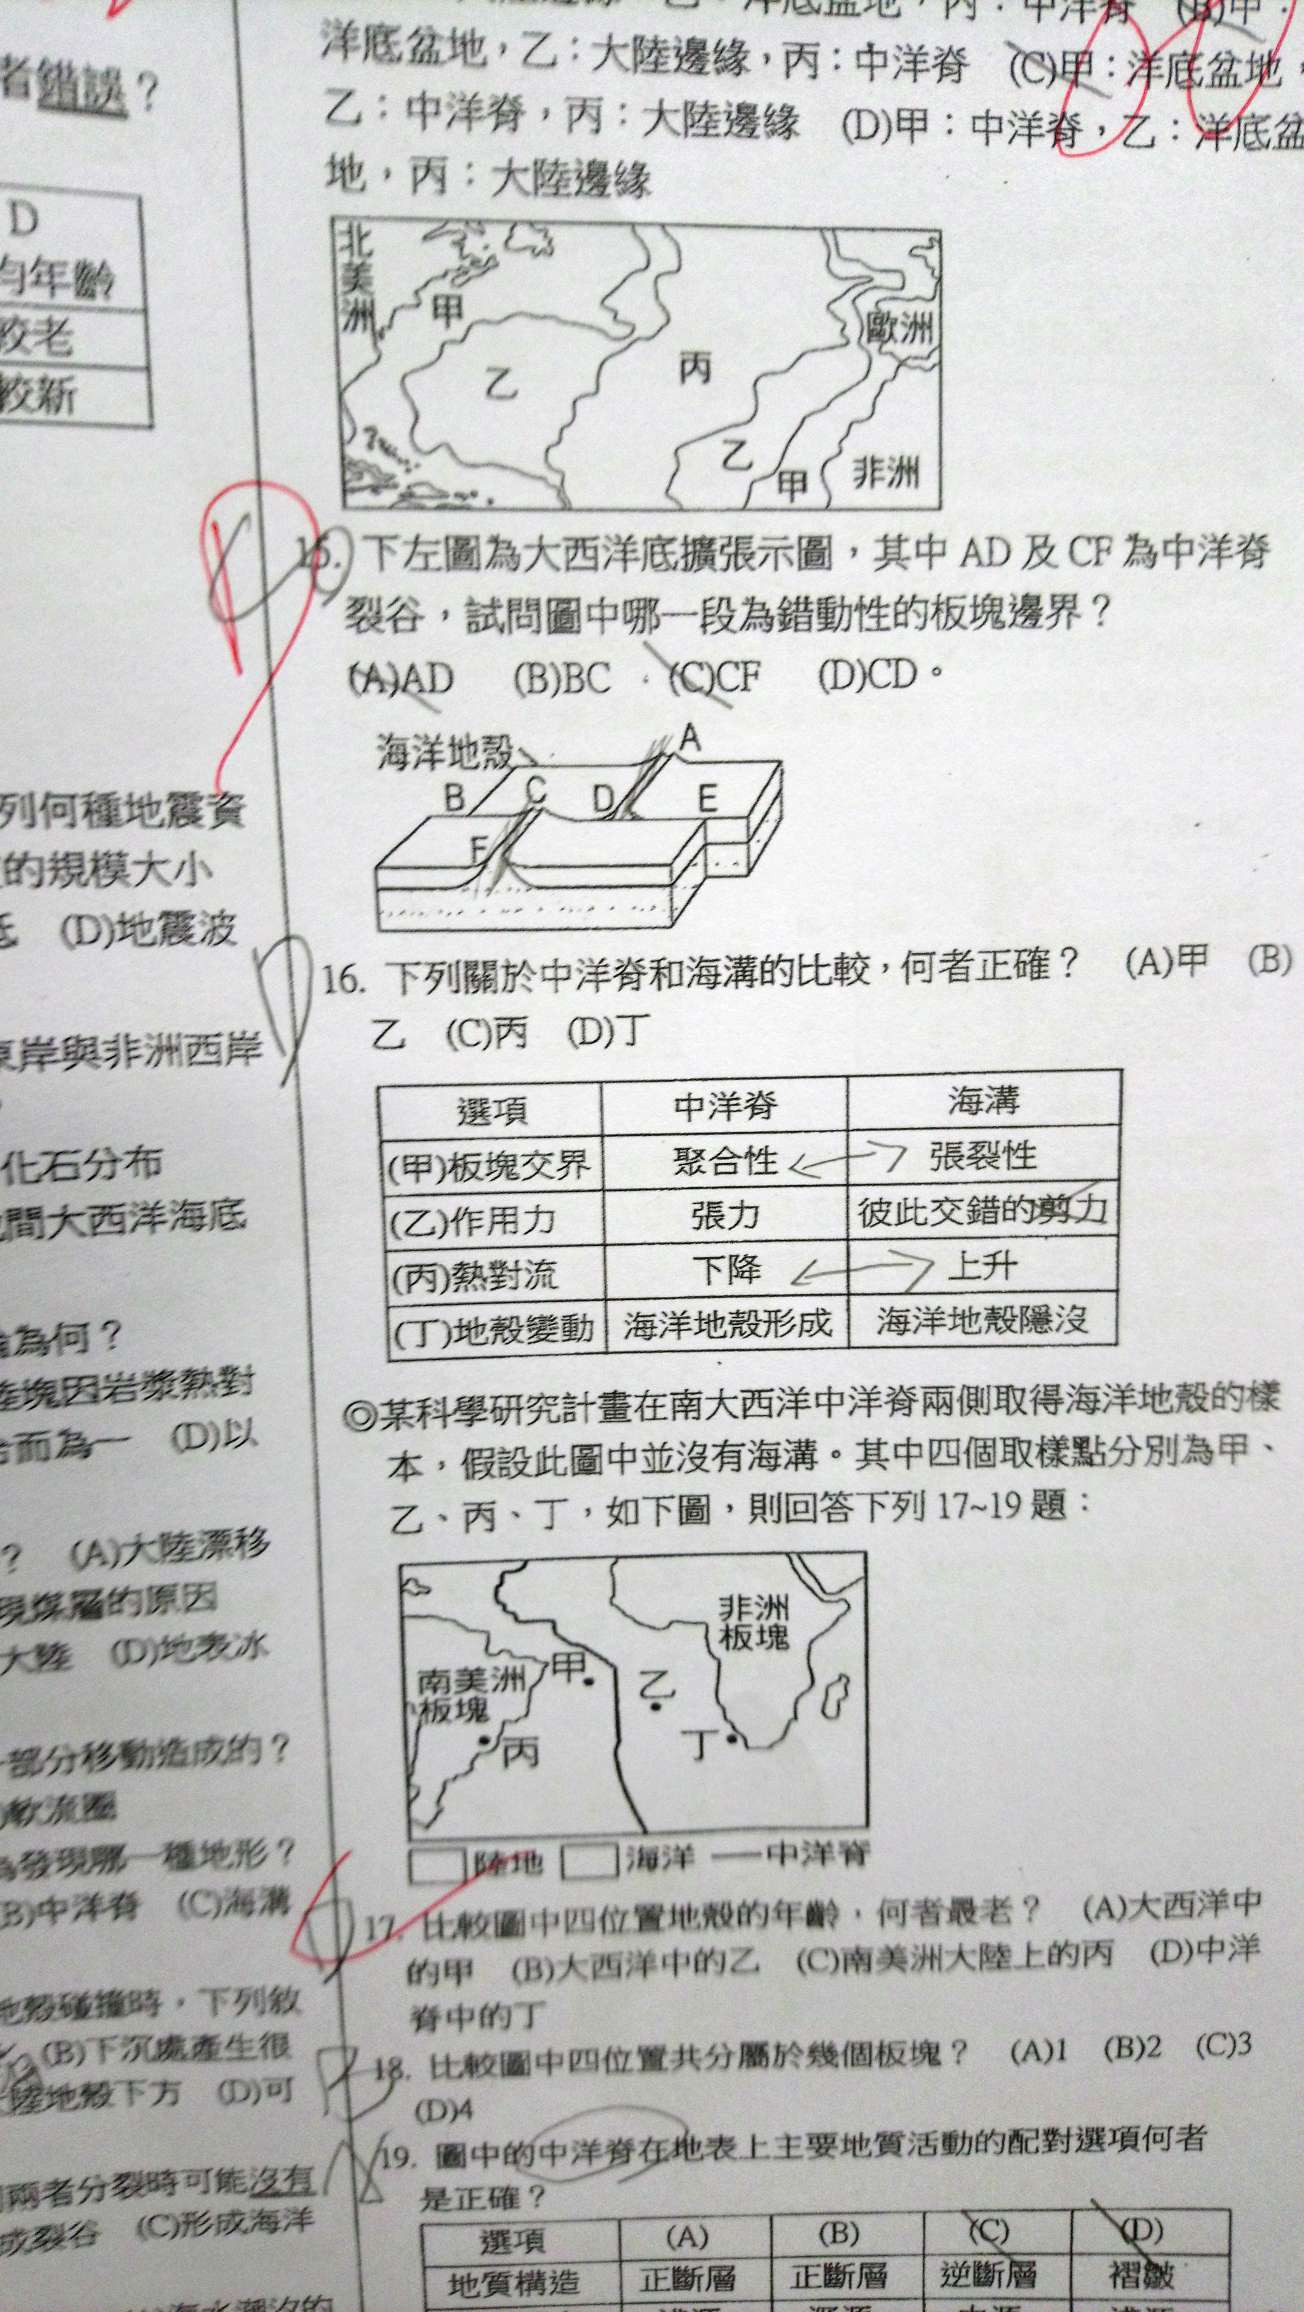 者錯誤？
D
均年齡
較老
較新
列何種地震資
的規模大小
(D)地震波
東岸與非洲西岸
化石分布
間大西洋海底
為何？
陸塊因岩漿熱對
合而為一 (D)以
？ (A)大陸漂移
現煤層的原因
大陸 (D)地表冰
部分移動造成的？
軟流圈
為發現哪一種地形？
(B)中洋脊 (C)海溝
地殼碰撞時，下列敘
(B)下沉處產生很
陸地殼下方 (D)可
兩者分裂時可能沒有
成裂谷 (C)形成海洋
洋底盆地，丙：中洋脊 (B)甲：
洋底盆地，乙：大陸邊緣，丙：中洋脊 (C)甲：洋底盆地，
乙：中洋脊，丙：大陸邊緣 (D)甲：中洋脊，乙：洋底盆
地，丙：大陸邊緣
北美洲
甲
乙
丙
歐洲
乙
甲
非洲
15. 下左圖為大西洋底擴張示圖，其中 AD 及 CF 為中洋脊
裂谷，試問圖中哪一段為錯動性的板塊邊界？
(A)AD (B)BC (C)CF (D)CD。
海洋地殼
A
B C D E
F
16. 下列關於中洋脊和海溝的比較，何者正確？ (A)甲 (B)
乙 (C)丙 (D)丁
選項 中洋脊 海溝
(甲)板塊交界 聚合性 張裂性
(乙)作用力 張力 彼此交錯的剪力
(丙)熱對流 下降 上升
(丁)地殼變動 海洋地殼形成 海洋地殼隱沒
◎某科學研究計畫在南大西洋中洋脊兩側取得海洋地殼的樣
本，假設此圖中並沒有海溝。其中四個取樣點分別為甲、
乙、丙、丁，如下圖，則回答下列 17~19 題：
非洲
板塊
南美洲
板塊
甲
乙
丙
丁
陸地 海洋 中洋脊
17. 比較圖中四位置地殼的年齡，何者最老？ (A)大西洋中
的甲 (B)大西洋中的乙 (C)南美洲大陸上的丙 (D)中洋
脊中的丁
18. 比較圖中四位置共分屬於幾個板塊？ (A)1 (B)2 (C)3
(D)4
19. 圖中的中洋脊在地表上主要地質活動的配對選項何者
是正確？
選項 (A) (B) (C) (D)
地質構造 正斷層 正斷層 逆斷層 褶皺